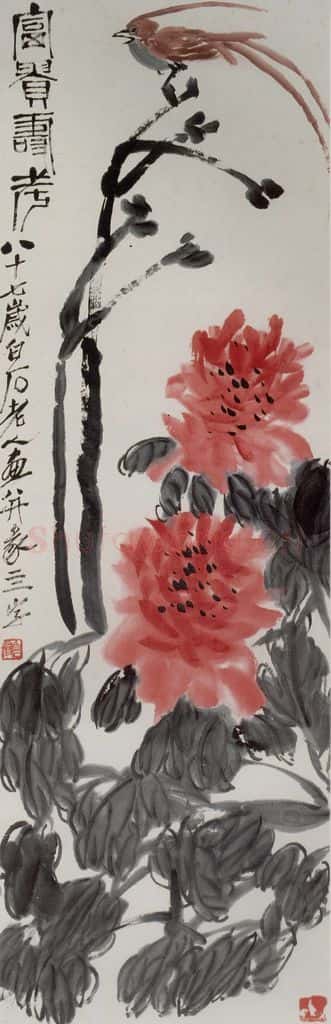 富貴壽考八十七歲白石老人畫并篆三字